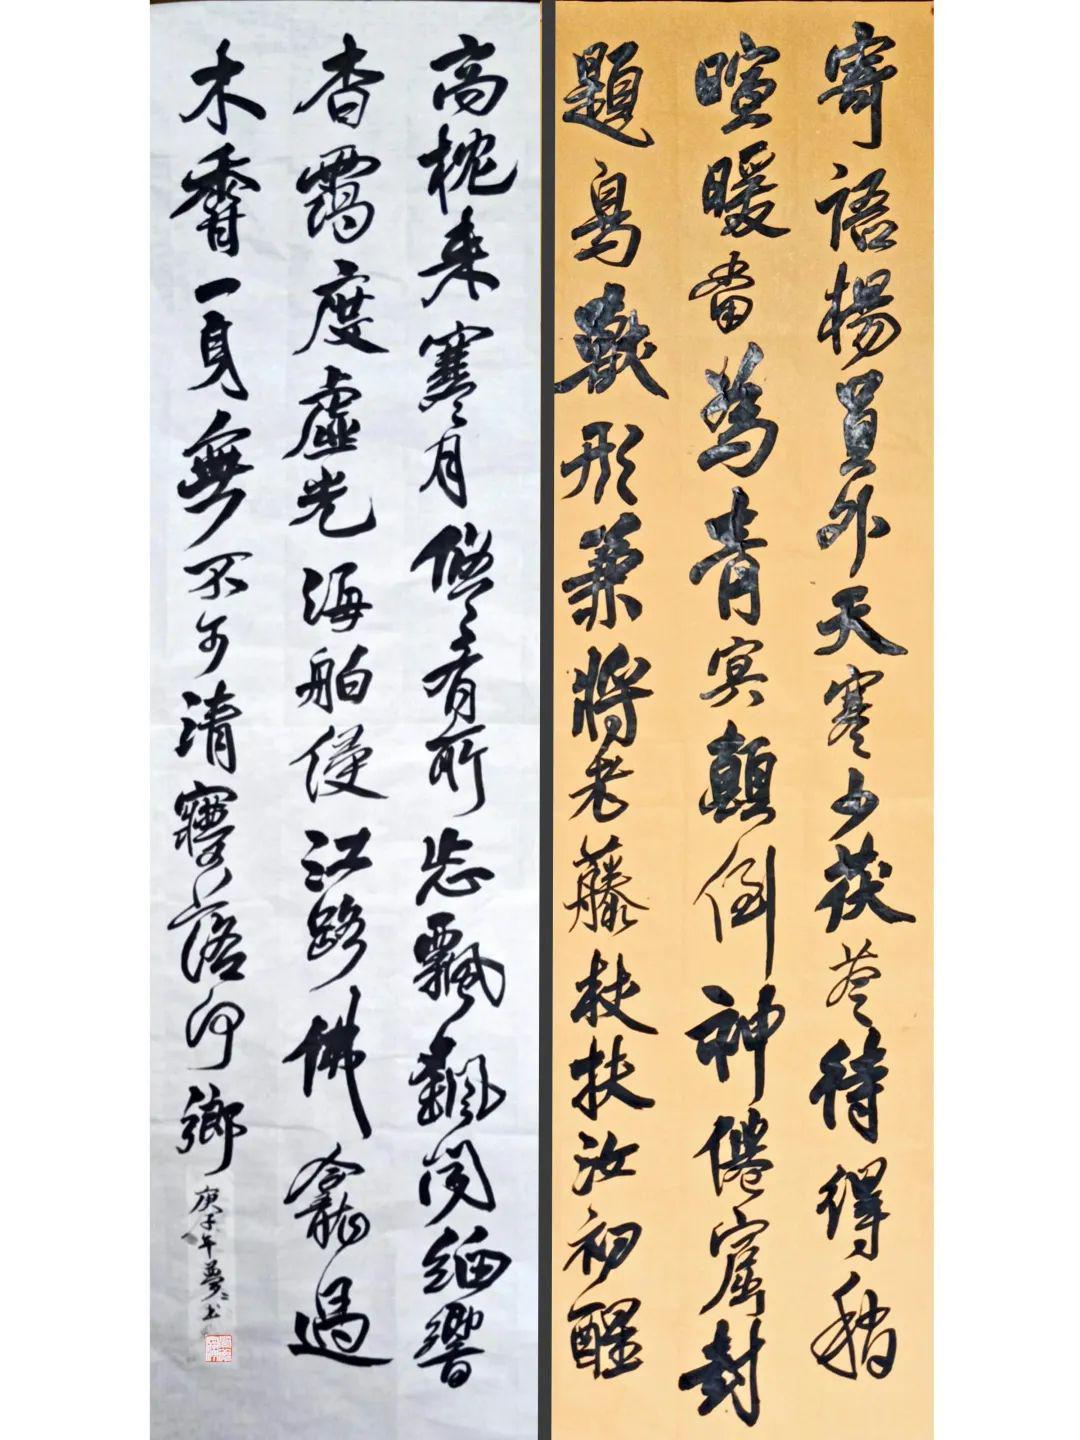 寄語楊員外天寒少茯苓待得稍
暄暖當為青冥顛倒神僊窟封
題鳥獸形兼將老藤杖扶汝初醒
高枕来寒月悠々有所忘飄飄聞細響
杳靄度虛光海舶侵江路佛龕過
木香一身無不可清夢落何鄉
庚子年夢书